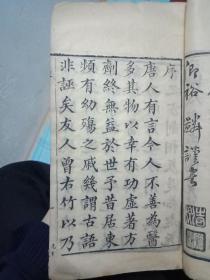 序
唐人有言今人不善為醫
多其物以幸有功虛著方
劑終無益於世予昔居東
頻有幼殤之戚幾謂古語
非誣矣友人曾右竹以乃
裕麟謹書